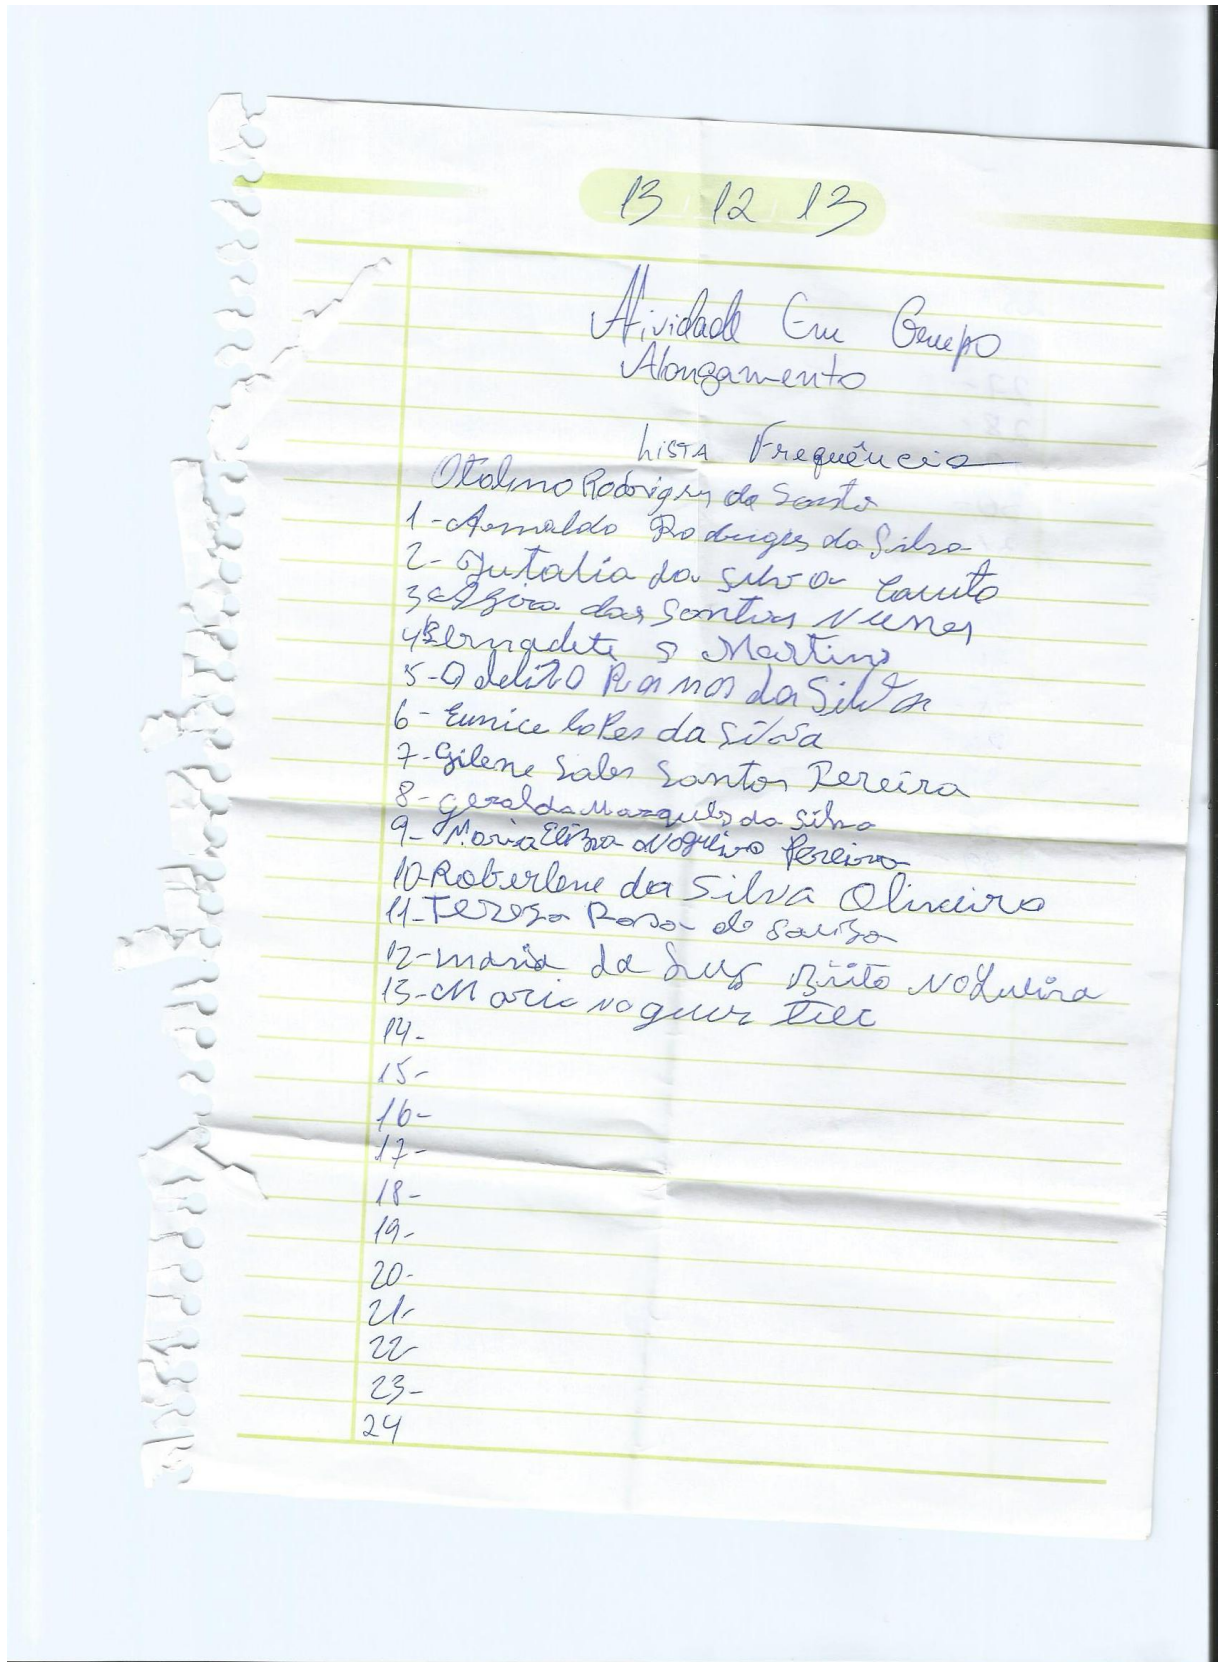 13 12 13
Atividade Em Grupo
Alongamento
LISTA Frequência
Rodrigues da Santo
1- Arnaldo Rodrigues da Silva
2- da Silva
3- dos Santos Nunes
4 Bernadete S Martins
5- Odelito Ramos da Silva
6- Eunice loPes da Silva
7- Gilene Sales Santos Pereira
8- geralda Marques da Silva
9- Maria Nogueira Pereira
10- Roberlene da Silva Oliveira
11- Tereza Rosa de Souza
12- maria da Luz Brito Nogueira
13- Maria
14-
15-
16-
17-
18-
19-
20-
21-
22-
23-
24